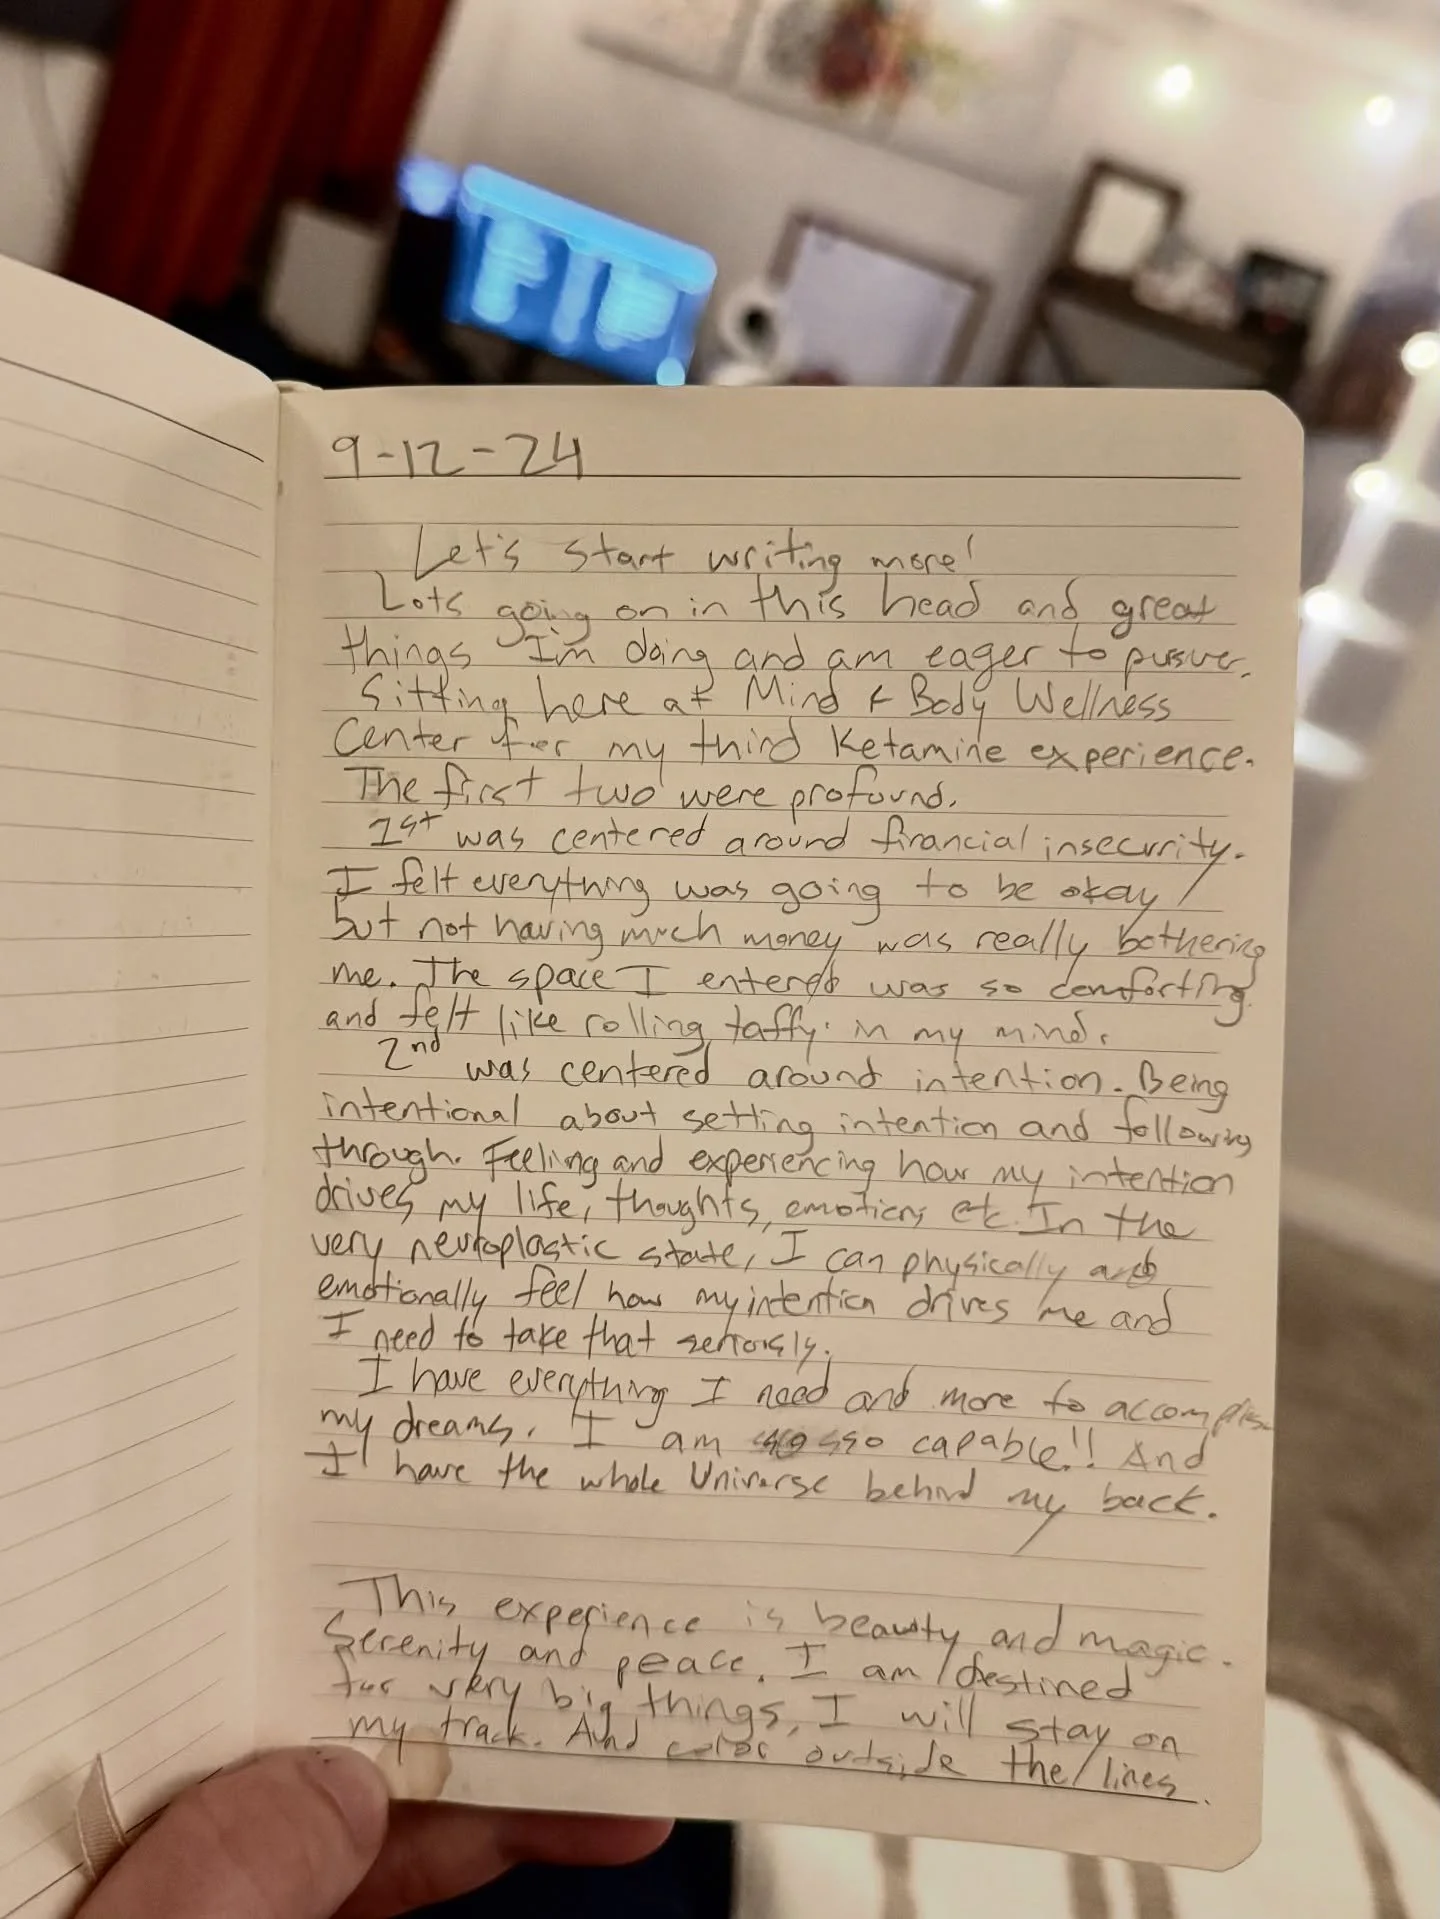 9-12-24
Let's start writing more!
Lots going on in this head and great
things I'm doing and am eager to pursue.
Sitting here at Mind & Body Wellness
Center for my third Ketamine experience.
The first two were profound.
1st was centered around financial insecurity.
I felt everything was going to be okay
but not having much money was really bothering
me. The space I entered was so comforting
and felt like rolling taffy in my mind.
2nd was centered around intention. Being
intentional about setting intention and following
through. Feeling and experiencing how my intention
drives my life, thoughts, emotions etc. In the
very neuroplastic state, I can physically and
emotionally feel how my intention drives me and
I need to take that seriously.
I have everything I need and more to accomplish
my dreams. I am so so capable!! And
I have the whole Universe behind my back.
This experience is beauty and magic.
Serenity and peace. I am destined
for very big things, I will stay on
my track. And color outside the lines.